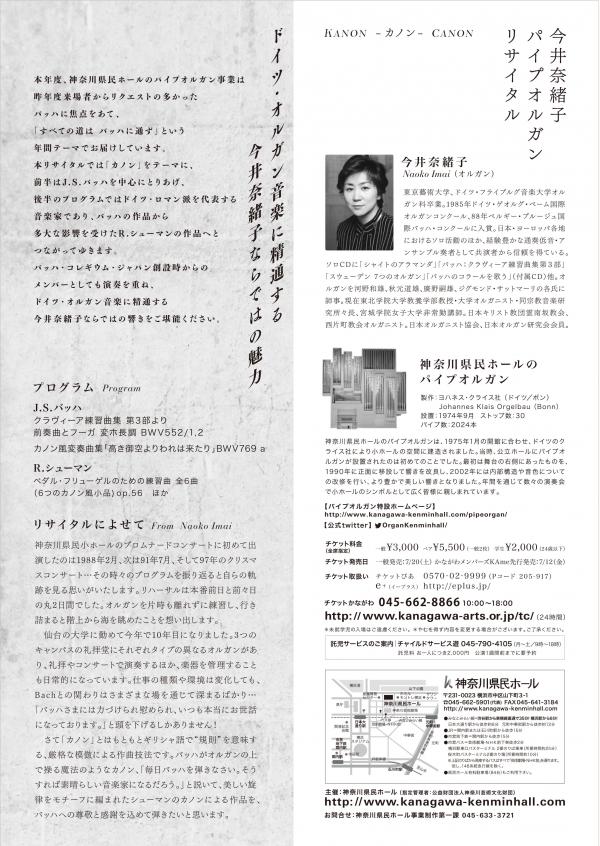 ドイツ・オルガン音楽に精通する
今井奈緒子ならではの魅力
本年度、神奈川県民ホールのパイプオルガン事業は
昨年度来場者からリクエストの多かった
バッハに焦点をあて、
「すべての道は バッハに通ず」という
年間テーマでお届けしています。
本リサイタルでは「カノン」をテーマに、
前半はJ.S.バッハを中心にとりあげ、
後半のプログラムではドイツ・ロマン派を代表する
音楽家であり、バッハの作品から
多大な影響を受けたR.シューマンの作品へと
つながってゆきます。
バッハ・コレギウム・ジャパン創設時からの
メンバーとしても演奏を重ね、
ドイツ・オルガン音楽に精通する
今井奈緒子ならではの響きをご堪能ください。
プログラム Program
J.S.バッハ
クラヴィーア練習曲集 第3部より
前奏曲とフーガ 変ホ長調 BWV552/1,2
カノン風変奏曲集「高き御空よりわれは来たり」BWV769 a
R.シューマン
ペダル・フリューゲルのための練習曲 全6曲
(6つのカノン風小品)op.56 ほか
リサイタルによせて From Naoko Imai
神奈川県民小ホールのプロムナードコンサートに初めて出
演したのは1988年2月、次は91年7月、そして97年のクリスマ
スコンサート…その時々のプログラムを振り返ると自らの軌
跡を見る思いがいたします。リハーサルは本番前日と前々日
の丸2日間でした。オルガンを片時も離れずに練習し、行き
詰まると階上から海を眺めたことを想い出します。
仙台の大学に勤めて今年で10年目になりました。3つの
キャンパスの礼拝堂にそれぞれタイプの異なるオルガンがあ
り、礼拝やコンサートで演奏するほか、楽器を管理すること
も日常的になっています。仕事の種類や環境は変化しても、
Bachとの関わりはさまざまな場を通じて深まるばかり…
「バッハさまには力づけられ慰められ、いつも本当にお世話
になっております。」と頭を下げるしかありません!
さて「カノン」とはもともとギリシャ語で"規則"を意味す
る、厳格な模倣による作曲技法です。バッハがオルガンの上
で操る魔法のようなカノン、「毎日バッハを弾きなさい。そう
すれば素晴らしい音楽家になるだろう。」と説いて、美しい旋
律をモチーフに編まれたシューマンのカノンによる作品を、
バッハへの尊敬と感謝を込めて弾きたいと思います。
KANON －カノン－ CANON
今井奈緒子
パイプオルガン
リサイタル
今井奈緒子
Naoko Imai (オルガン)
東京藝術大学、ドイツ・フライブルグ音楽大学オル
ガン科卒業。1985年ドイツ・ゲオルグ・ベーム国際
オルガンコンクール、88年ベルギー・ブルージュ国
際バッハ・コンクールに入賞。日本・ヨーロッパ各地
におけるソロ活動のほか、経験豊かな通奏低音・ア
ンサンブル奏者として共演者から信頼を得ている。
ソロCDに「シャイトのアラマンダ」「バッハ:クラヴィーア練習曲集第3部」
「スウェーデン 7つのオルガン」「バッハのコラールを歌う」(付属CD)他。オ
ルガンを河野和雄、秋元道雄、廣野嗣雄、ジグモンド・サットマリーの各氏に
師事。現在東北学院大学教養学部教授・大学オルガニスト・同宗教音楽研
究所所長、宮城学院女子大学非常勤講師。日本キリスト教団霊南坂教会、
西片町教会オルガニスト。日本オルガニスト協会、日本オルガン研究会会員。
神奈川県民ホールの
パイプオルガン
製作:ヨハネス・クライス社 (ドイツ/ボン)
Johannes Klais Orgelbau (Bonn)
設置:1974年9月 ストップ数:30
パイプ数:2024本
神奈川県民ホールのパイプオルガンは、1975年1月の開館に合わせ、ドイツのク
ライス社により小ホールの空間に建造されました。当時、公立ホールにパイプオ
ルガンが設置されたのは初めてのことでした。最初は舞台の右側にあったものを、
1990年に正面に移設して響きを改良し、2002年には内部構造や音色について
の改修を行い、より豊かで美しい響きとなりました。年間を通じて数々の演奏会
で小ホールのシンボルとして広く皆様に親しまれています。
【パイプオルガン特設ホームページ】
http://www.kanagawa-kenminhall.com/pipeorgan/
【公式twitter】 OrganKenminhall/
チケット料金 (全席指定) 一般¥3,000 ペア¥5,500 (一般2枚) 学生¥2,000 (24歳以下)
チケット発売日 一般発売:7/20(土) かながわメンバーズKAme先行発売:7/12(金)
チケット取扱い チケットぴあ 0570-02-9999 (Pコード 205-917)
e+ (イープラス) http://eplus.jp/
チケットかながわ 045-662-8866 10:00〜18:00
http://www.kanagawa-arts.or.jp/tc/ (24時間)
*未就学児の入場はご遠慮ください。*やむを得ず内容を変更する場合がございます。ご了承ください。
託児サービスのご案内 チャイルドサービス遊 045-790-4105 (月〜土/9時〜19時)
託児料 お一人につき2,000円 公演1週間前までに要予約
神奈川県民ホール
〒231-0023 横浜市中区山下町3-1
☎045-662-5901(代表) FAX045-641-3184
http://www.kanagawa-kenminhall.com
主催:神奈川県民ホール (指定管理者:公益財団法人神奈川芸術文化財団)
http://www.kanagawa-kenminhall.com
お問合せ:神奈川県民ホール事業制作第一課 045-633-3721